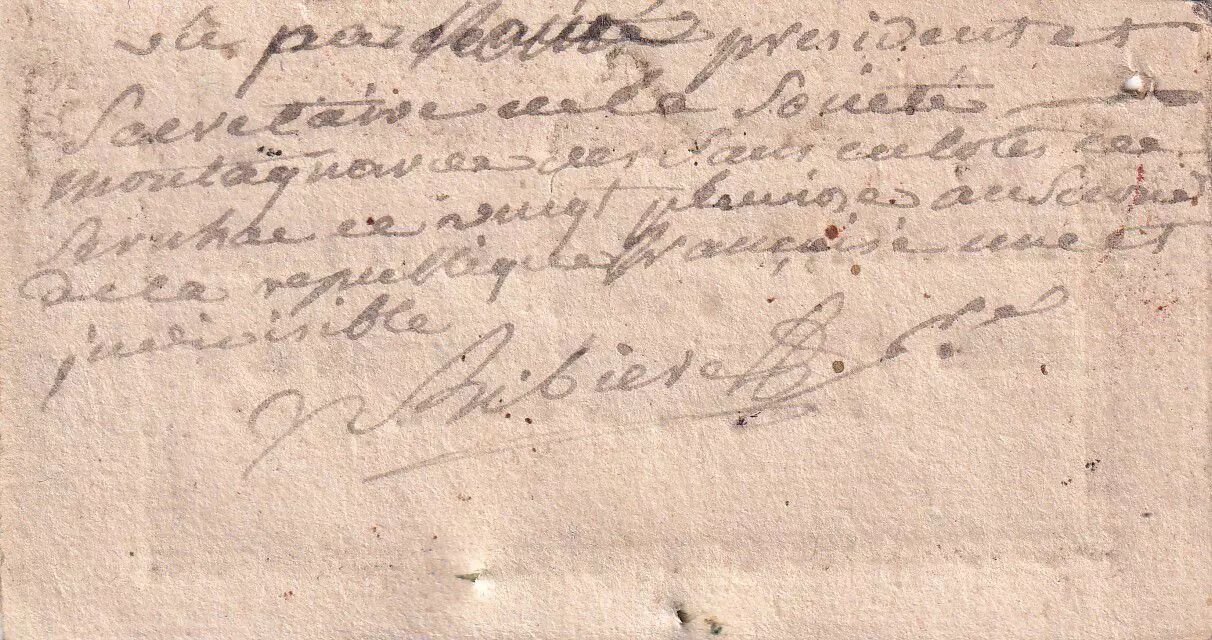 vû par nous president et
Secretaire de la Société
montagnarde des Sans culotes de
ce vingt pluviose an Second
de la republique française une et
indivisible
Ribiere